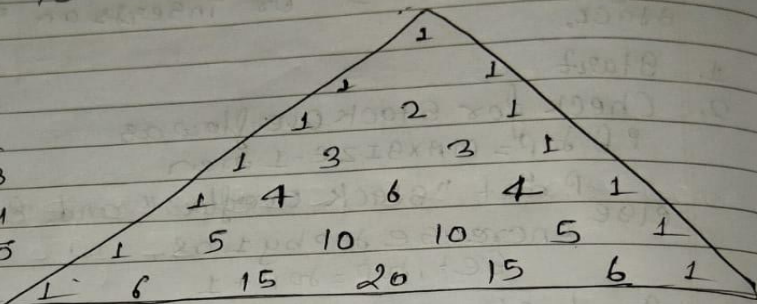 1
1 1
1 2 1
3 1 3 3 1
4 1 4 6 4 1
5 1 5 10 10 5 1
1 6 15 20 15 6 1